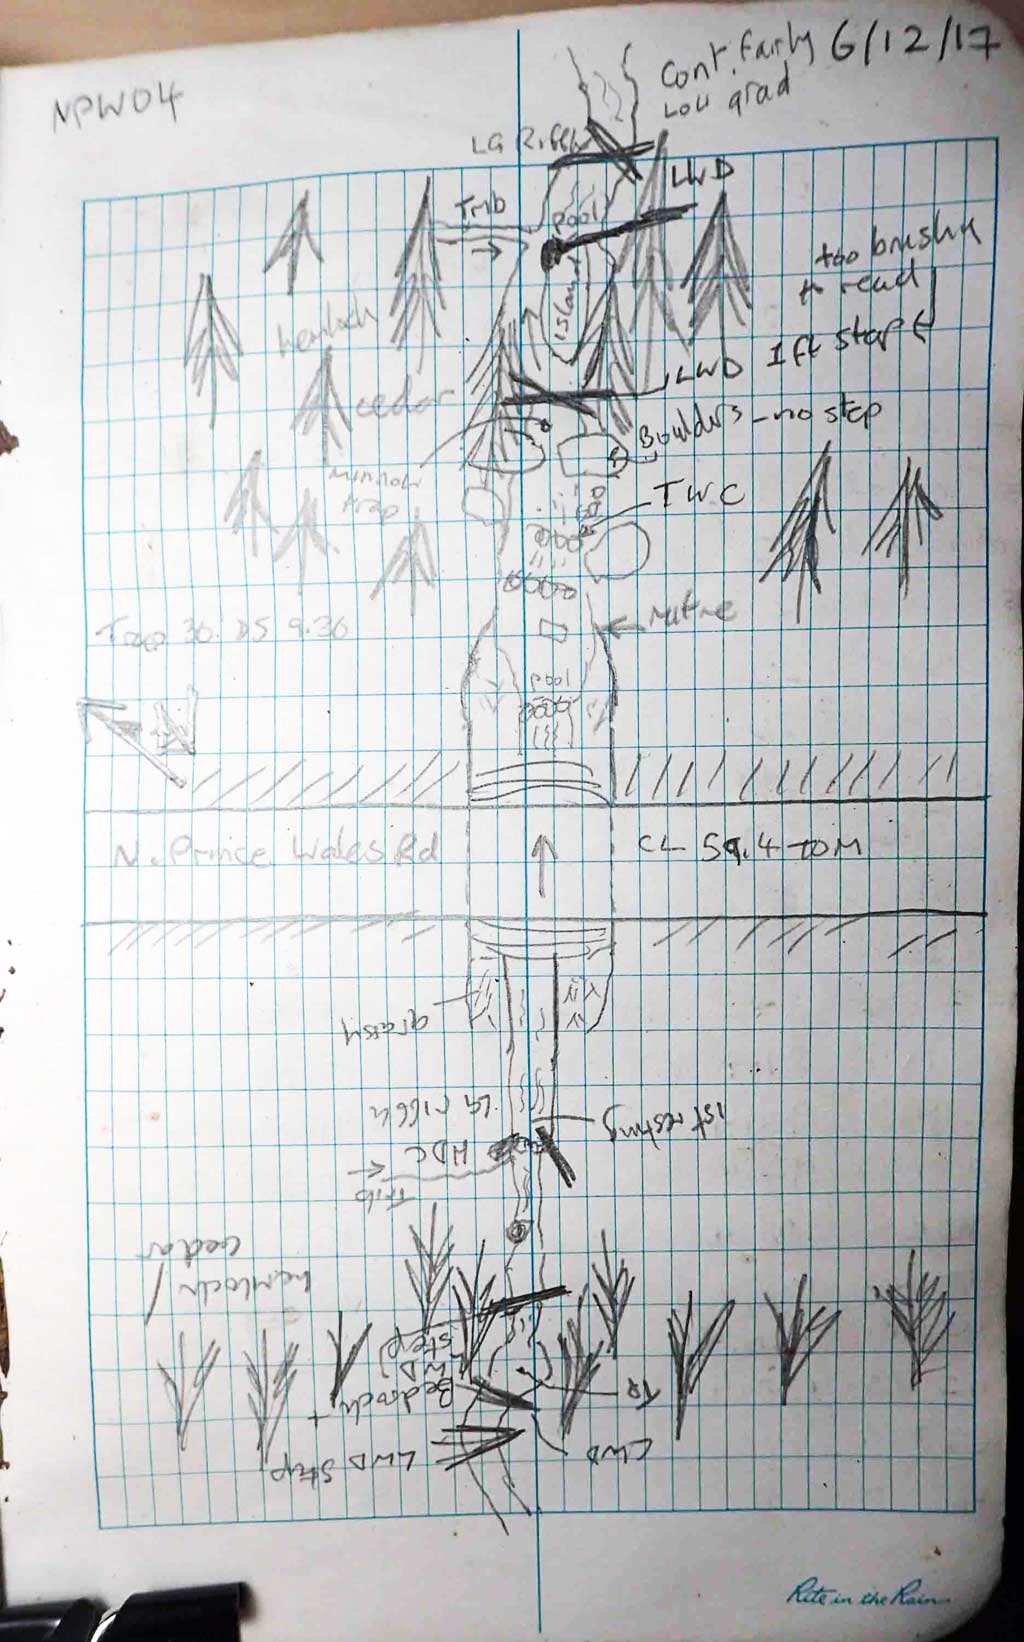 NPW04
6/12/17
Cont. fairly
Low grad
LG Riffle
LWD
Trib
Pool
too brushy
to read
Island
hemlock
LWD 1 ft step
cedar
Boulders - no step
minnow
trap
TWC
Trap 30' DS 9.30
pool
N. Prince Wales Rd
CL 59.4 TO M
grassy
LG riffle
1st resting
HDC
Trib
cedar
hemlock
LWD
step
Bedrock
+
TR
LWD Step
LWD
Rite in the Rain